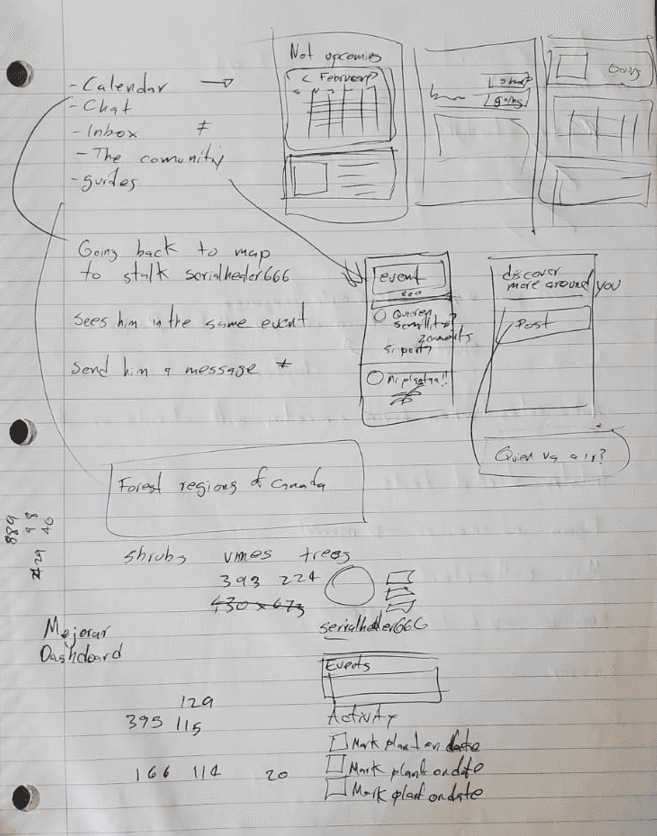 Not upcoming
< February >
- Calendar →
- Chat
- Inbox *
- The comunity
- guides
going
Going
Going back to map
to stalk serialhealer666
sees him in the same event
send him a message *
event
Quieren
semillitas?
2 comments
Mi plantaa!!
discover
more around you
Post
Quien va a ir?
Forest regions of Canada
shrubs vines trees
393 224
430 x 673
serialhealer666
889
98
46
29
Mejorar
Dashboard
Events
Activity
Mark plant on date
Mark plant on date
Mark plant on date
129
395 115
166 114 20